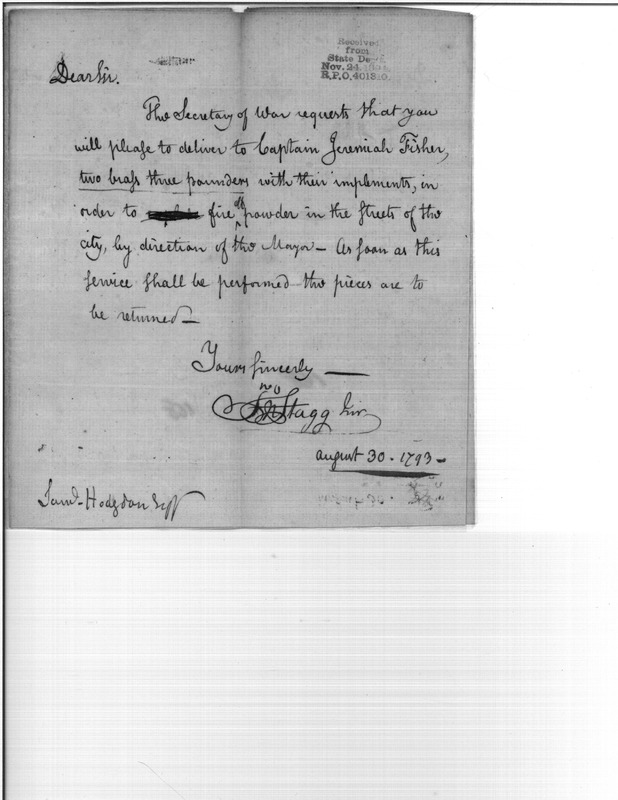 Received
from
State Dept.
Nov. 24
R.P.O. 401810.
Dear Sir.
The Secretary of War requests that you
will please to deliver to Captain Jeremiah Fisher,
two brass three pounders with their implements, in
order to fire off powder in the streets of the
city, by direction of the Mayor — As soon as this
service shall be performed the pieces are to
be returned —
Yours sincerly —
Jno Stagg Junr
August 30. 1793 —
Saml. Hodgdon Esqr